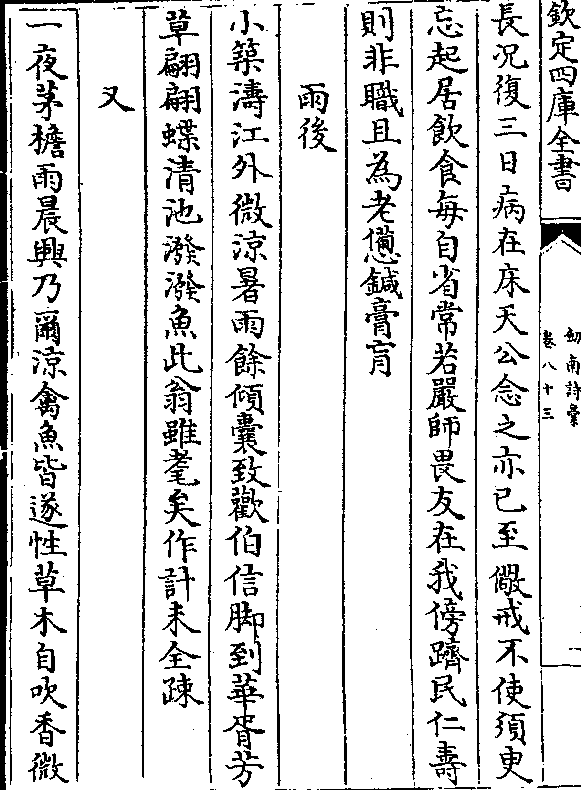 欽定四庫全書
劒南詩槀
卷八十三
長况復三日病在床天公念之亦已至儆戒不使須臾
忘起居飲食每自省常若嚴師畏友在我傍躋民仁壽
則非職且為老憊鍼膏肓
雨後
小築濤江外微涼暑雨餘傾囊致歡伯信脚到華胥芳
草翩翩蝶清池潑潑魚此翁雖耄矣作計未全疎
又
一夜茅檐雨晨興乃爾涼禽魚皆遂性草木自吹香微